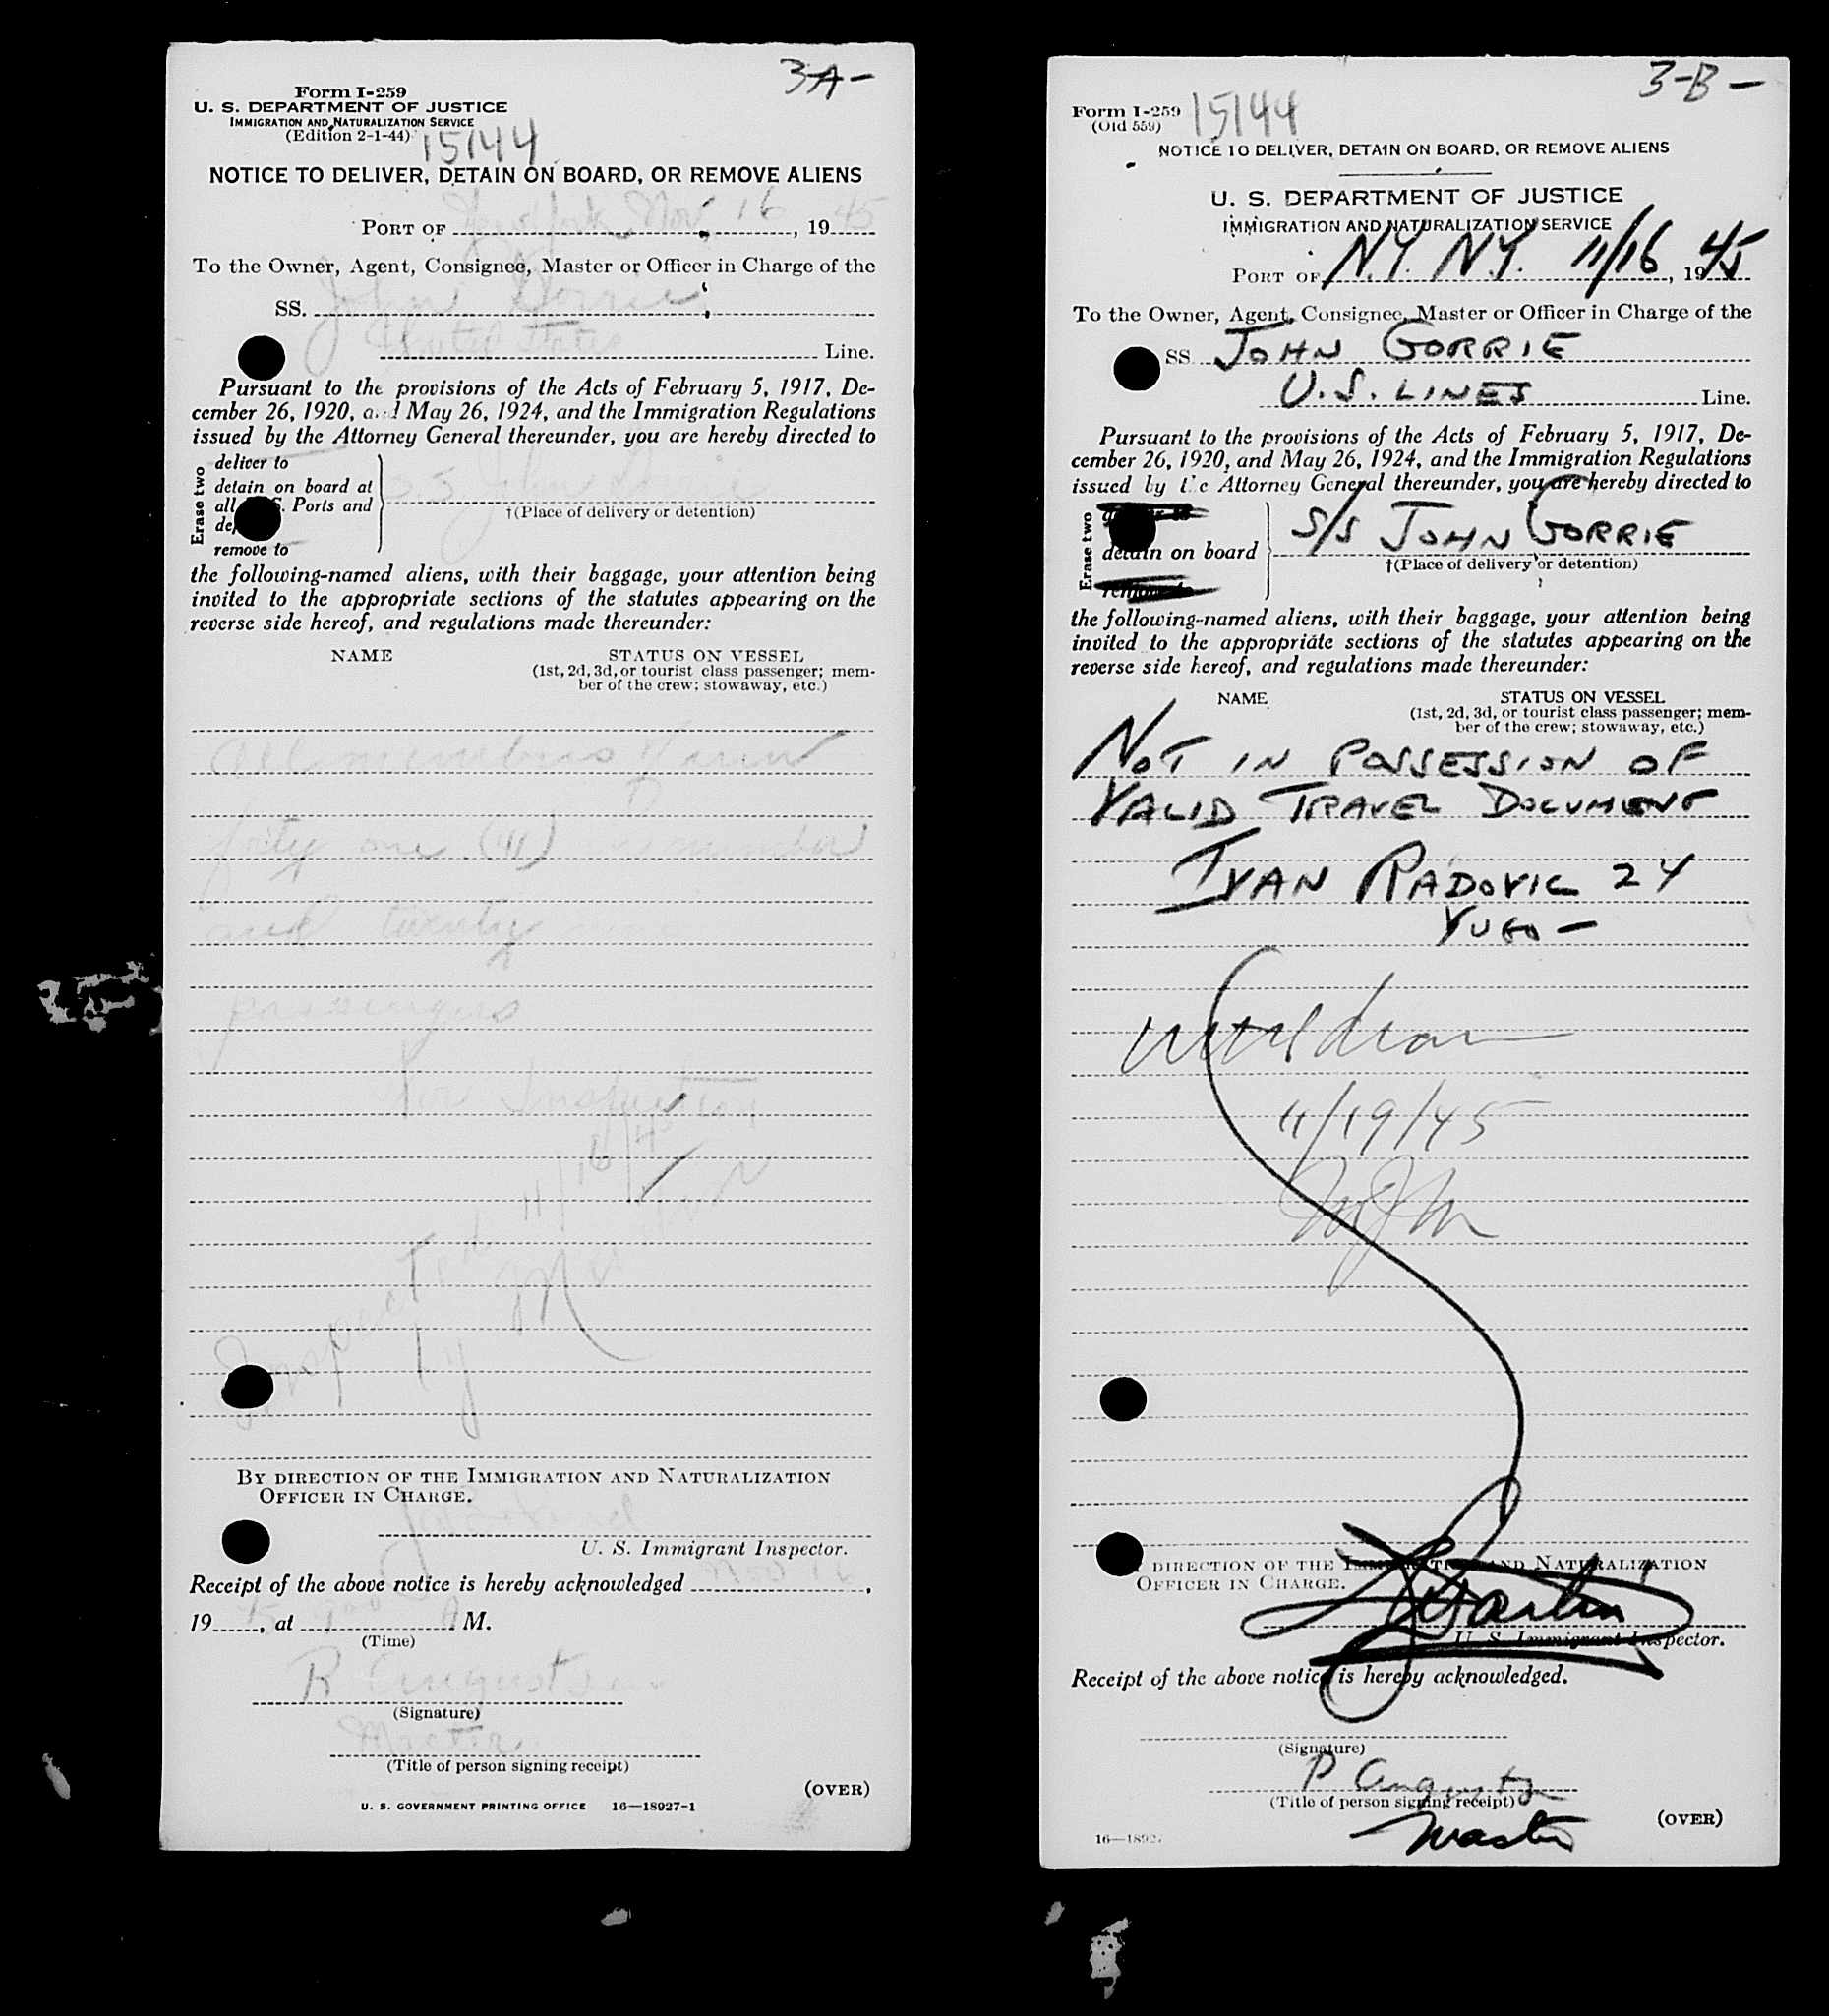 3-A-
Form I-259
U. S. DEPARTMENT OF JUSTICE
IMMIGRATION AND NATURALIZATION SERVICE
(Edition 2-1-44)
15144
NOTICE TO DELIVER, DETAIN ON BOARD, OR REMOVE ALIENS
PORT OF New York Nov. 16, 1945
To the Owner, Agent, Consignee, Master or Officer in Charge of the
SS. John Gorrie
United States Line.
Pursuant to the provisions of the Acts of February 5, 1917, De-
cember 26, 1920, and May 26, 1924, and the Immigration Regulations
issued by the Attorney General thereunder, you are hereby directed to
Erase two
deliver to
detain on board at
all Ports and
remove to
S.S. John Gorrie
†(Place of delivery or detention)
the following-named aliens, with their baggage, your attention being
invited to the appropriate sections of the statutes appearing on the
reverse side hereof, and regulations made thereunder:
NAME STATUS ON VESSEL
(1st, 2d, 3d, or tourist class passenger; mem-
ber of the crew; stowaway, etc.)
All members
forty one (41) in number
and twenty nine
passengers
for Inspection
11/16/45
Inspected
by
BY DIRECTION OF THE IMMIGRATION AND NATURALIZATION
OFFICER IN CHARGE.
U. S. Immigrant Inspector.
Receipt of the above notice is hereby acknowledged Nov 16,
1945, at 9 00 A M.
(Time)
(Signature)
Master
(Title of person signing receipt)
(OVER)
U. S. GOVERNMENT PRINTING OFFICE 16—18927-1
3-B-
Form I-259
(Old 559)
15144
NOTICE TO DELIVER, DETAIN ON BOARD, OR REMOVE ALIENS
U. S. DEPARTMENT OF JUSTICE
IMMIGRATION AND NATURALIZATION SERVICE
PORT OF N.Y. N.Y. 11/16, 1945
To the Owner, Agent, Consignee, Master or Officer in Charge of the
SS. JOHN GORRIE
U.S. LINES Line.
Pursuant to the provisions of the Acts of February 5, 1917, De-
cember 26, 1920, and May 26, 1924, and the Immigration Regulations
issued by the Attorney General thereunder, you are hereby directed to
Erase two
detain on board
S/S JOHN GORRIE
†(Place of delivery or detention)
the following-named aliens, with their baggage, your attention being
invited to the appropriate sections of the statutes appearing on the
reverse side hereof, and regulations made thereunder:
NAME STATUS ON VESSEL
(1st, 2d, 3d, or tourist class passenger; mem-
ber of the crew; stowaway, etc.)
NOT IN POSSESSION OF
VALID TRAVEL DOCUMENT
IVAN RADOVIC 24
YUGO-
Withdrawn
11/19/45
DIRECTION OF THE IMMIGRATION AND NATURALIZATION
OFFICER IN CHARGE.
U. S. Immigrant Inspector.
Receipt of the above notice is hereby acknowledged.
(Signature)
(Title of person signing receipt)
Master
(OVER)
16—1892